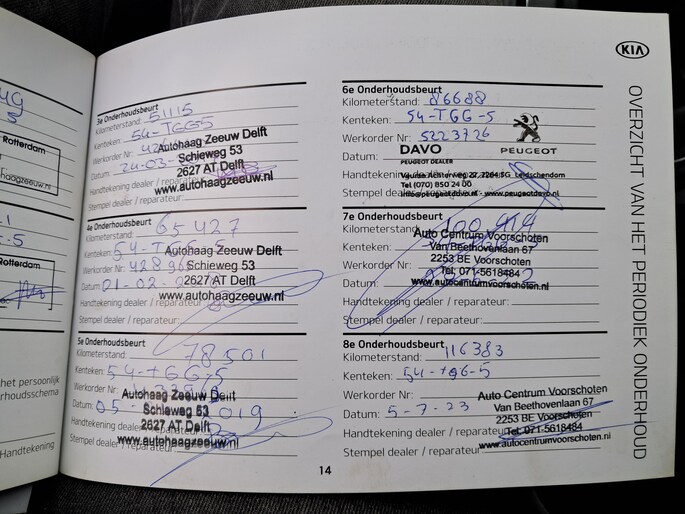 KIA
OVERZICHT VAN HET PERIODIEK ONDERHOUD
Rotterdam
Rotterdam
het persoonlijk
Handtekening
3e Onderhoudsbeurt
Kilometerstand: 51115
Kenteken: 54-TGG5
Werkorder Nr: 42
Datum: 24-03
Handtekening dealer / reparateur
Stempel dealer / reparateur:
Autohaag Zeeuw Delft
Schieweg 53
2627 AT Delft
www.autohaagzeeuw.nl
4e Onderhoudsbeurt
Kilometerstand: 65427
Kenteken: 54-TGG-5
Werkorder Nr: 42896
Datum: 01-02-2
Handtekening dealer / reparateur
Stempel dealer / reparateur:
Autohaag Zeeuw Delft
Schieweg 53
2627 AT Delft
www.autohaagzeeuw.nl
5e Onderhoudsbeurt
Kilometerstand: 78501
Kenteken: 54-TGG-5
Werkorder Nr:
Datum: 05- 2019
Handtekening dealer / reparateur
Stempel dealer / reparateur:
Autohaag Zeeuw Delft
Schieweg 53
2627 AT Delft
www.autohaagzeeuw.nl
6e Onderhoudsbeurt
Kilometerstand: 86688
Kenteken: 54-TGG-5
Werkorder Nr: 5223726
Datum:
Handtekening
Stempel dealer
DAVO PEUGEOT
PEUGEOT DEALER
Leidschendam
Tel (070) 850 24 00
www.peugeotdavo.nl
7e Onderhoudsbeurt
Kilometerstand:
Kenteken:
Werkorder Nr:
Datum:
Handtekening dealer / reparateur:
Stempel dealer / reparateur:
Auto Centrum Voorschoten
Van Beethovenlaan 67
2253 BE Voorschoten
Tel: 071-5618484
www.autocentrumvoorschoten.nl
8e Onderhoudsbeurt
Kilometerstand: 116383
Kenteken: 54-tgg-5
Werkorder Nr:
Datum: 5-7-23
Handtekening dealer / reparateur
Stempel dealer / reparateur:
Auto Centrum Voorschoten
Van Beethovenlaan 67
2253 BE Voorschoten
Tel: 071-5618484
www.autocentrumvoorschoten.nl
14